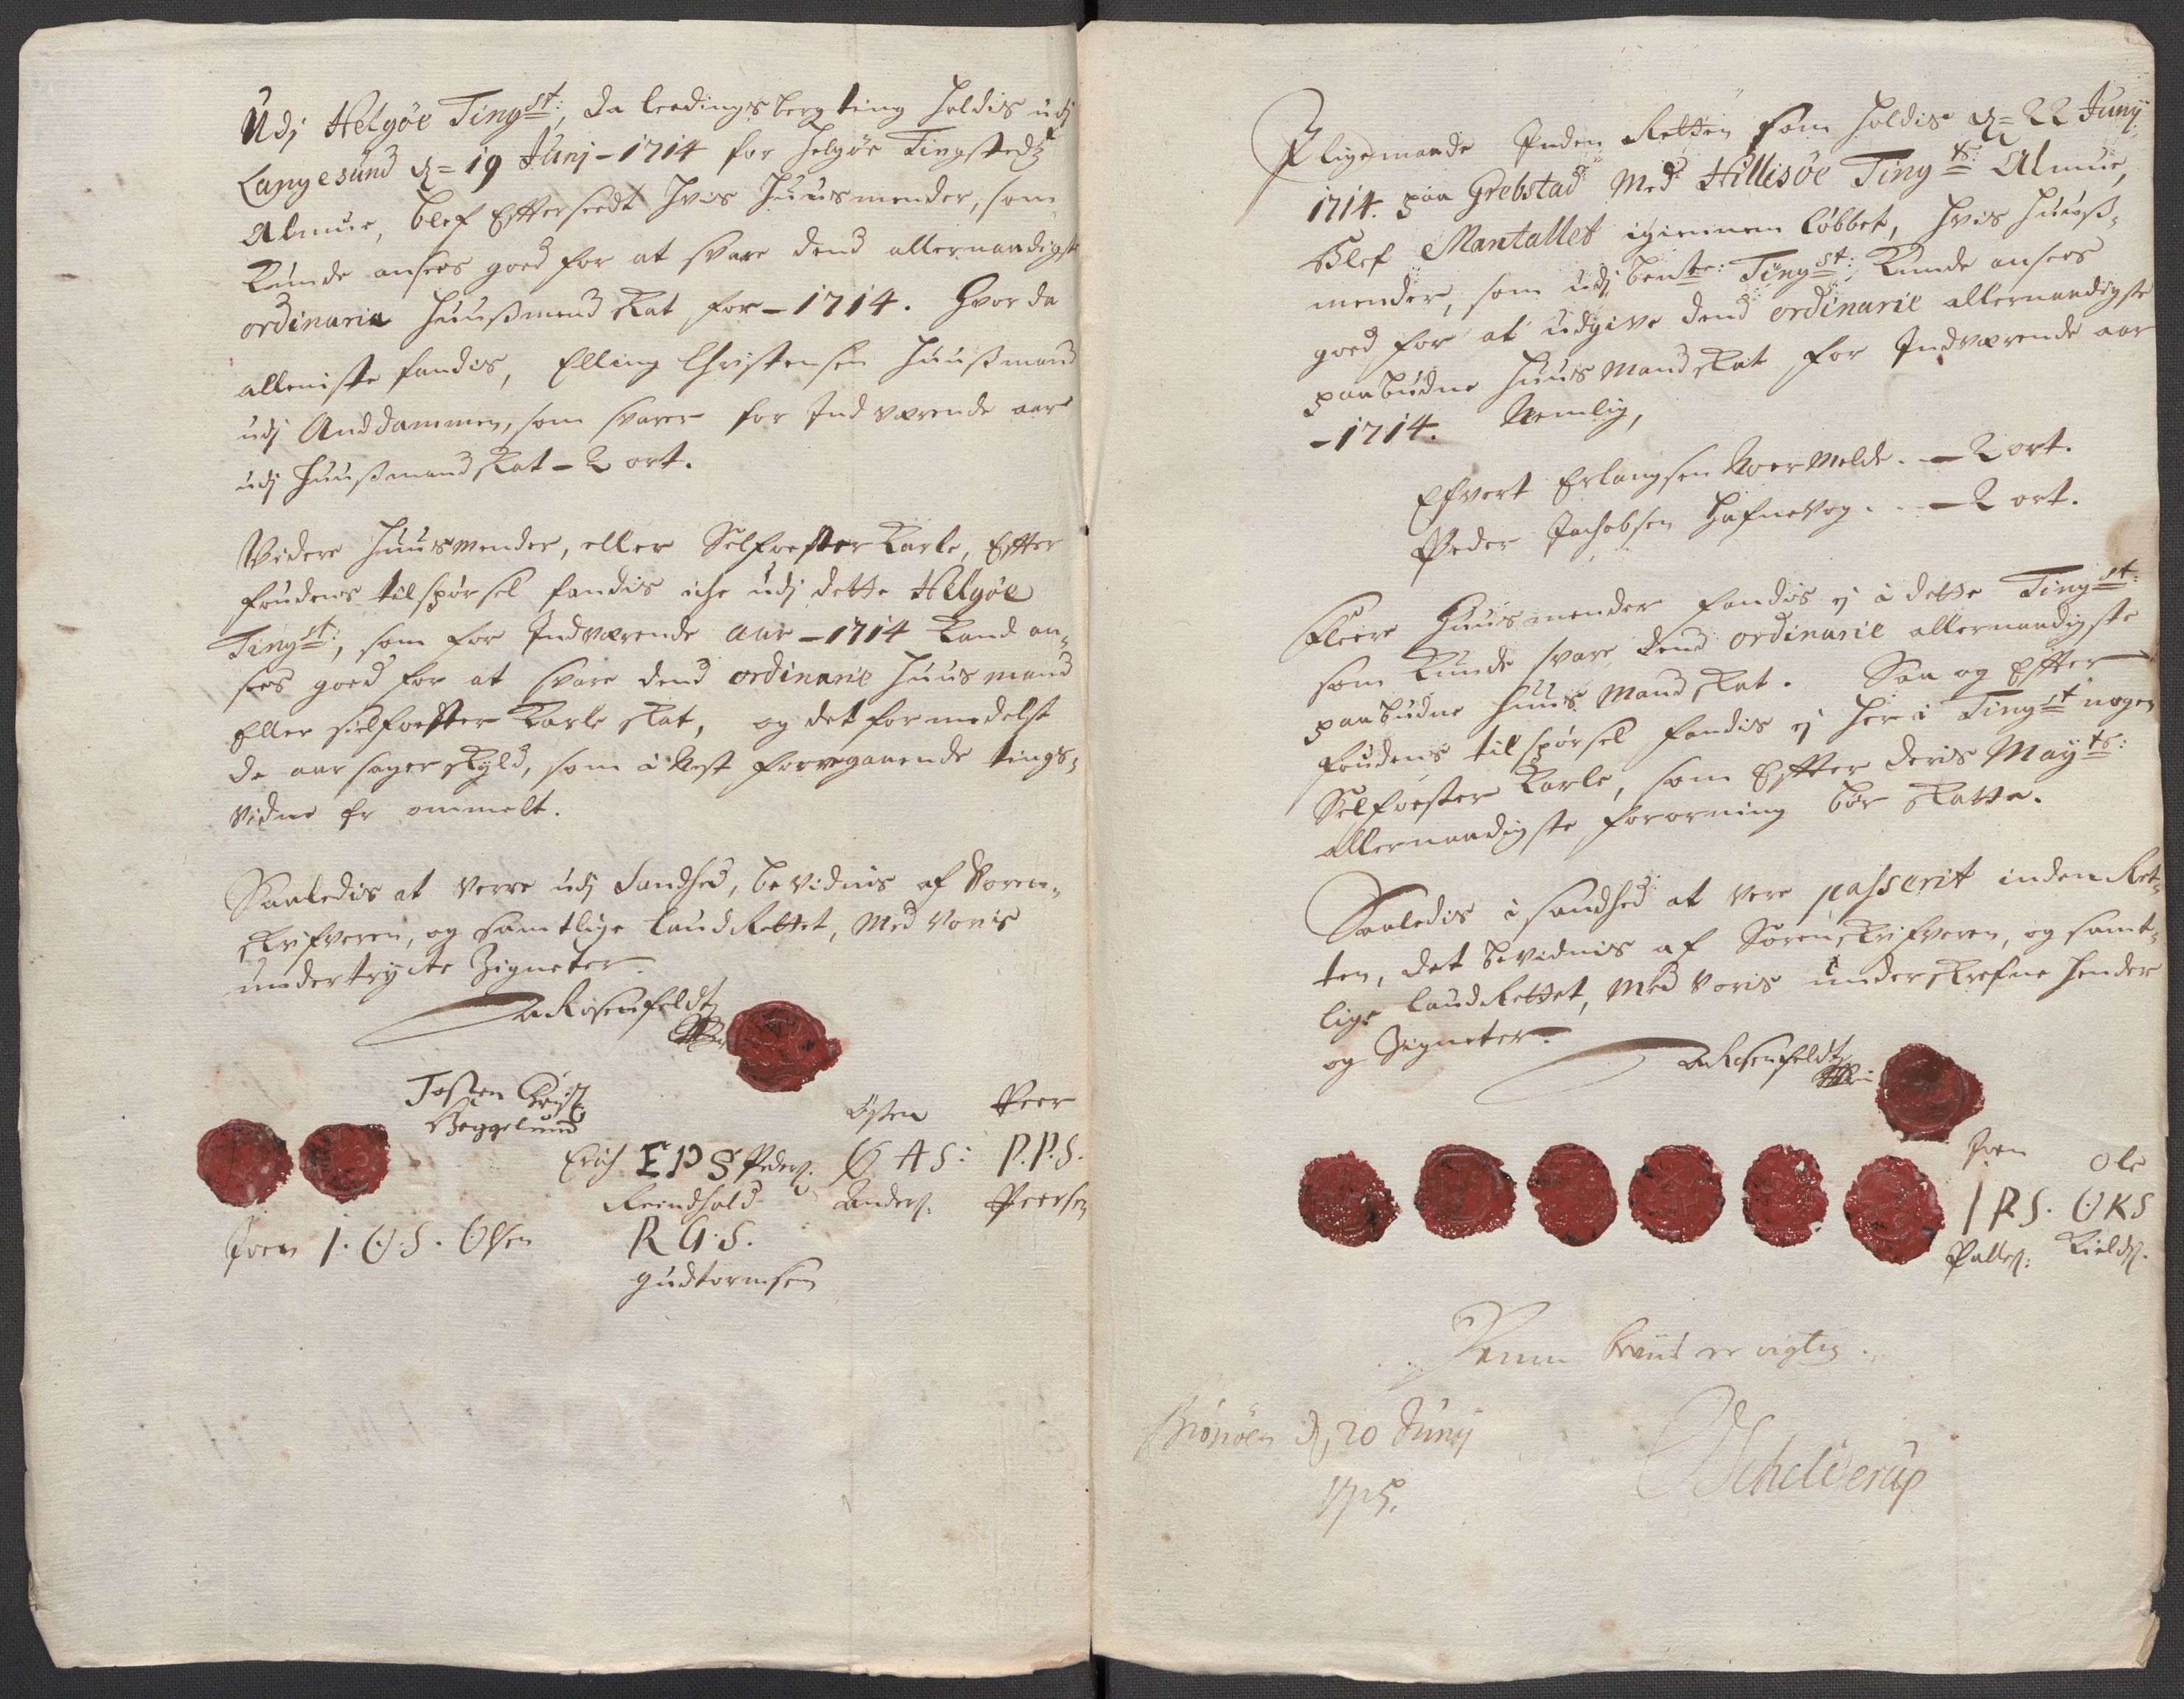 Udj Helgøe Tingst:, da leedingsberg ting holdis udj
Langesund d= 19 Junj - 1714 for Helgøe Tingstedz
Almue, blef Efterseedt hvis Huusmender, som
kunde ansees goed for at svare dend allernaadigste
ordinaria Huusmand skat for - 1714. Hvor da
alleniste fandis, Elling Christensen Huusmand
udj Anddammen, som svarer for Indværende aar
udj Huusmandskat - 2 ort.
Videre Huusmender, eller Selfoster Karle, Efter
foudens tilspørsel fandis iche udj dette Helgøe
Tingst:, som for Indværende aar - 1714 kand an¬
sees goed for at svare dend ordinarie Huusmand
Eller sielfoster Karle skat, og det formedelst
de aarsager skyld, som i nest forregaaende tings¬
vidne er ommelt.
Saaledis at verre udj Sandhed, bevidnis af Soren¬
skrifveren, og samtlige LaudRettet, Med voris
undertrycte Zigneter.
Rosenfeldt
Tosten Christ
Beggelund
Østen Peer
Erich EPS Peders. Ø A S: P. P. S.
Reindhold Anders. Peersen
Iver I. O. S. Olsen R G. S.
gudtormsen
Ligemaade Inden Retten som holdis d= 22 Junij
1714. paa Grebstad Med Hillisøe Tingts: Almue,
Blef Mantallet igiennem løbbet, hvis Huus¬
mender, som udj bente: Tingst: kunde ansees
goed for at udgive dend ordinarie allernaadigste
paabudne Huusmandskat for Indværende aar
- 1714. Nemlig,
Efvert Erlangsen - 2 ort.
Peder Jachobsen Hafnevog - 2 ort.
Fleere Huusmender fandis ej i dette Tingst:
som kunde svare dend ordinarie allernaadigste
paabudne Huus Mand skat. Saa og Efter
foudens tilspørsel fandis ej her i Tingst nogen
Selfoster Karle, som Efter deris Mayts:
allernaadigste forordning bør skatte.
Saaledis i sandhed at vere passerit inden Ret¬
ten, det bevidnis af Sorenskrifveren, og samt¬
lige LaudRettet, Med voris underskrefne hender
og Zigneter.
Rosenfeldt
Iver Ole
I P S. O K S
Palles: Kields.
er rigtig.
d, 20 Junij
1715. Schelderup